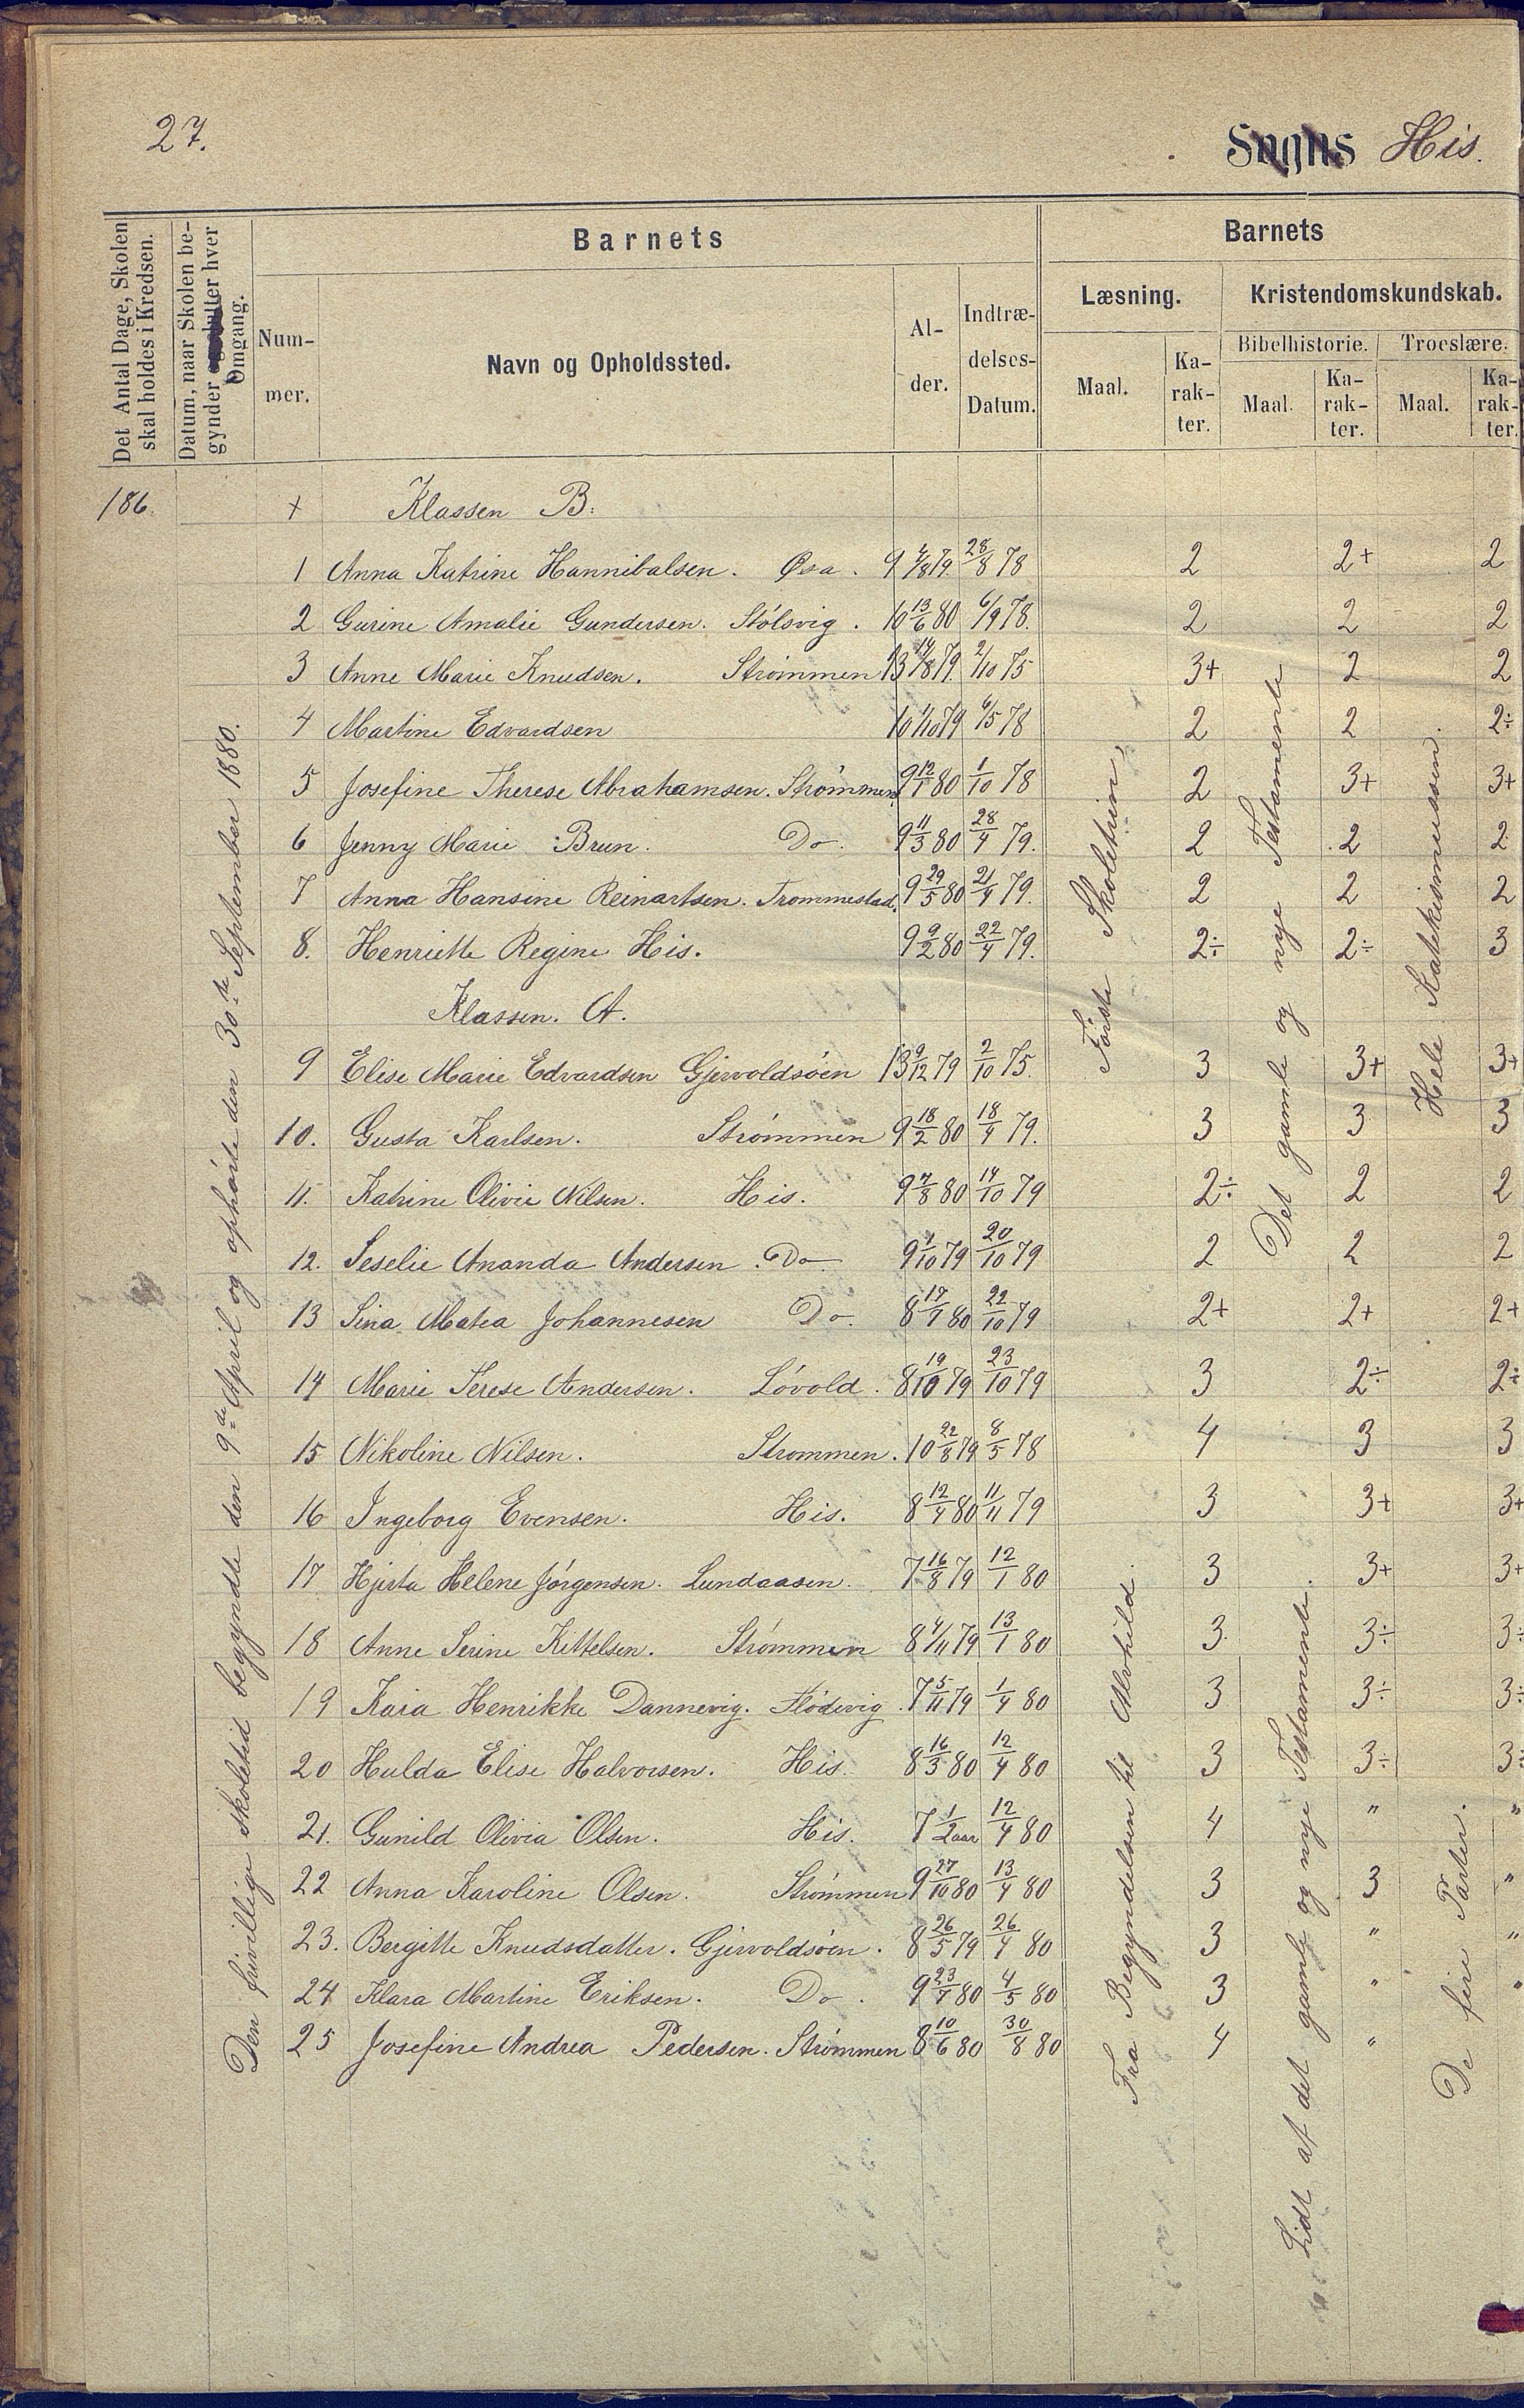 27.
Sogns His.
Det Antal Dage, Skolen skal holdes i Kredsen.
Datum, naar Skolen begynder hver Omgang.
Barnets
Nummer.
Navn og Opholdssted.
Alder.
Indtrædelses-Datum.
Barnets
Læsning.
Kristendomskundskab.
Bibelhistorie.
Troeslære.
Maal.
Karakter.
Maal.
Karakter.
Maal.
Karakter.
186. + Klassen B:
1 Anna Katrine Hannibalsen. Øsa. 9 4/8 79. 28/8 78 2 2+ 2
2 Gurine Amalie Gundersen. Stólsvig. 10 13/6 80 6/9 78. 2 2 2
3 Anne Marie Knudsen. Strómmen 13 14/8 79. 2/10 75 3+ 2 2
4 Martine Edvardsen 10 1/10 79 6/5 78 2 2 2÷
5 Josefine Therese Abrahamsen. Strómmen. 9 12/1 80 1/10 78 2 3+ 3+
6 Jenny Marie Brun. Do. 9 11/3 80 28/4 79. 2 2 2
7 Anna Hansine Reinartsen. Trommestad. 9 29/5 80 21/4 79. 2 2 2
8. Henriette Regine His. 9 9/2 80 22/4 79. 2÷ 2÷ 3
Klassen. A.
9 Elise Marie Edvardsen Gjervoldsóen 13 9/12 79 2/10 75. 3 3+ 3+
10. Gusta Karlsen. Strómmen 9 18/2 80 18/4 79. 3 3 3
11. Katrine Olivie Nilsen. His. 9 7/8 80 14/10 79 2÷ 2 2
12. Seselie Ananda Andersen. Do 9 9/10 79 20/10 79 2 2 2
13 Sina Matea Johannesen Do. 8 17/9 80 22/10 79 2+ 2+ 2+
14 Marie Terese Andersen. Lóvold. 8 19/10 79 23/10 79 3 2÷ 2÷
15 Nikoline Nilsen. Strommen. 10 22/8 79 8/5 78 4 3 3
16 Ingeborg Evensen. His. 8 12/4 80 11/11 79 3 3+ 3+
17 Hjerta Helene Jórgensen. Lundaasen. 7 16/8 79 12/1 80 3 3+ 3+
18 Anne Serine Kittelsen. Strómmen 8 4/11 79 13/1 80 3 3÷ 3÷
19 Kaia Henrikke Dannevig. Flódevig. 7 5/11 79 1/4 80 3 3÷ 3÷
20 Hulda Elise Halvorsen. His. 8 16/3 80 12/4 80 3 3÷ 3÷
21. Gunild Olivia Olsen. His. 7 1/2 aar 12/4 80 4 " "
22 Anna Karoline Olsen. Strómmen 9 27/10 80 13/4 80 3 3 "
23. Bergitte Knudsdatter. Gjervoldsóen. 8 26/5 79 26/4 80 3 " "
24 Klara Martine Eriksen. Do. 9 23/7 80 4/5 80 3 " "
25 Josefine Andrea Pedersen. Strómmen 8 10/6 80 30/8 80 4 "
Den frivillige skoletid begyndte den 9de April og ophórte den 30te September 1880.
Fórste Skoletrin,
Fra Begyndelsen til Alvhild.
Det gamle og nye Testamente
Lidt af det gamle og nye Testamente.
Hele Katekismussen.
De fire Parter.